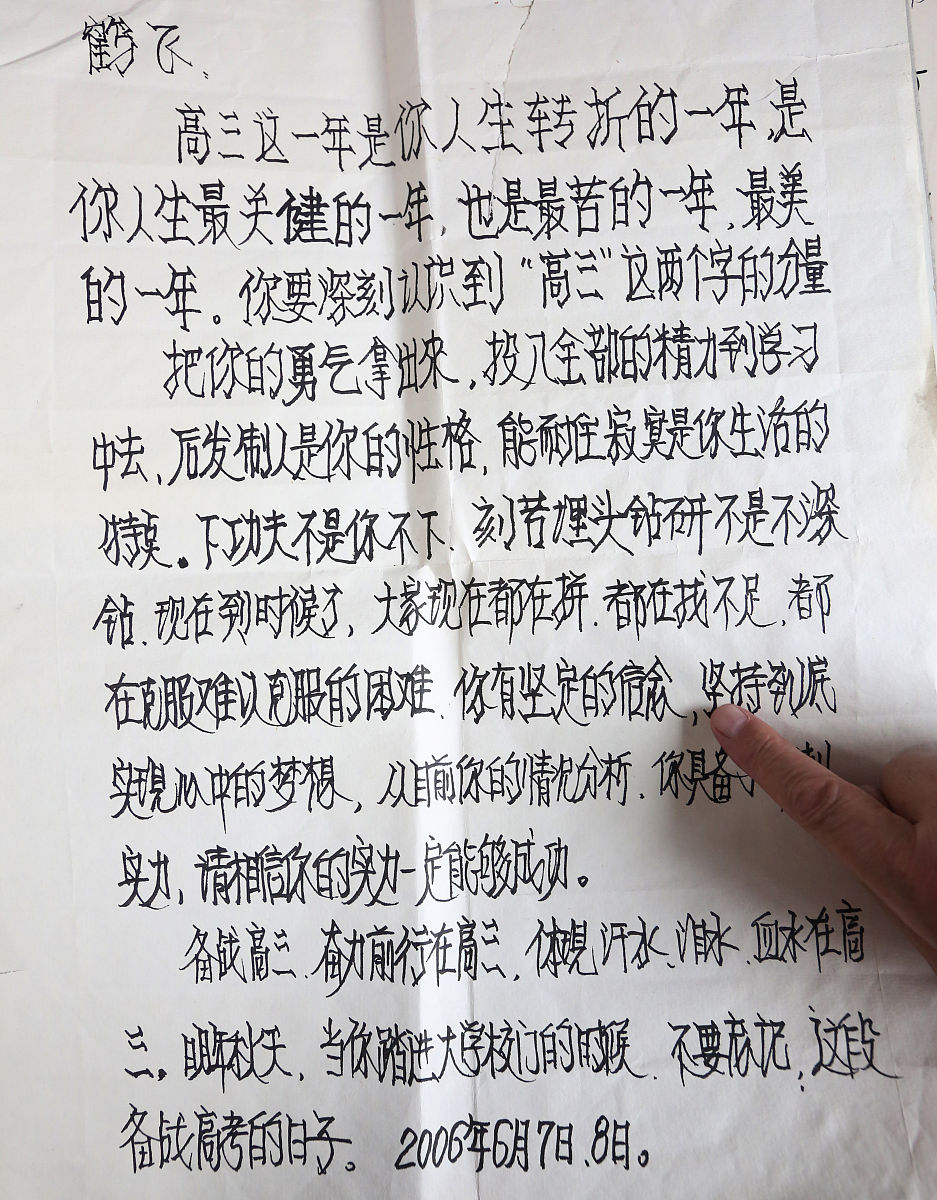 鹤飞、
高三这一年是你人生转折的一年,是
你人生最关健的一年,也是最苦的一年,最美
的一年。你要深刻认识到“高三”这两个字的力量
把你的勇气拿出来,投入全部的精力到学习
中去、后发制人是你的性格,能耐住寂寞是你生活的
特点。下功夫不是你不下、刻苦埋头钻研不是不深
钻.现在到时候了,大家现在都在拼.都在找不足,都
在克服难以克服的困难.你有坚定的信念,坚持到底
实现心中的梦想,从目前你的情况分析.你具备
实力,请相信你的实力一定能够成功。
备战高三.奋力前行在高三,体现汗水、泪水、血水在高
三。明年秋天,当你踏进大学校门的时候.不要忘记,这段
备战高考的日子。2006年6月7日、8日。